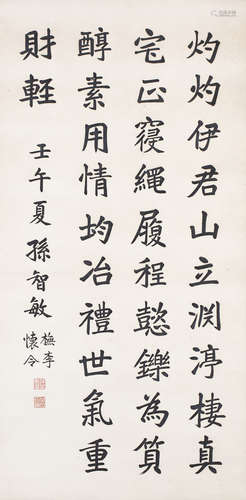 灼灼伊君山立淵渟棲真
宅正寑繩履程懿鑠為質
醇素用情均冶禮世氣重
財輕
壬午夏孫智敏
橅李
懷令